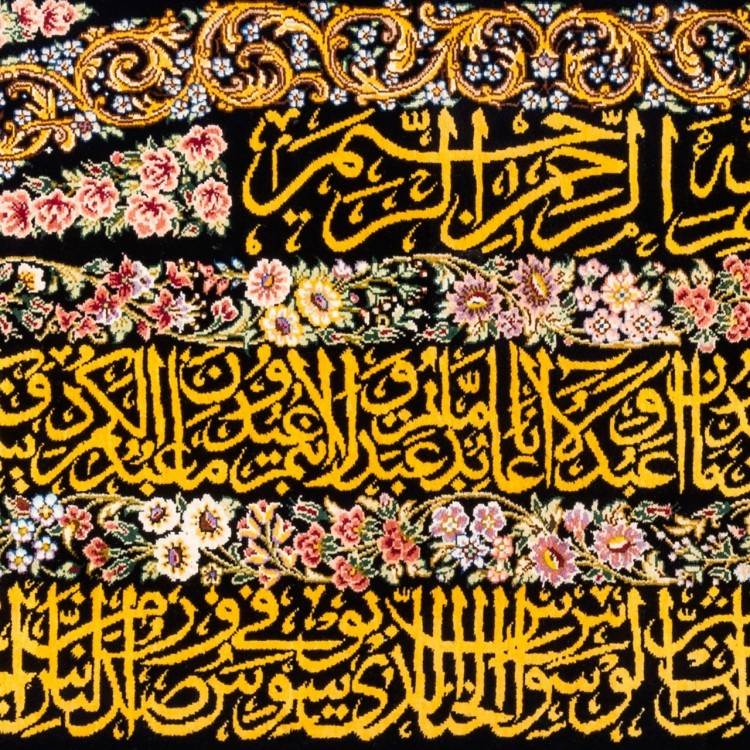 الرحمن الرحيم
ما اعبد ولا انا عابد ما عبدتم ولا انتم عابدون ما اعبد لكم
من شر الوسواس الخناس الذي يوسوس في صدور الناس